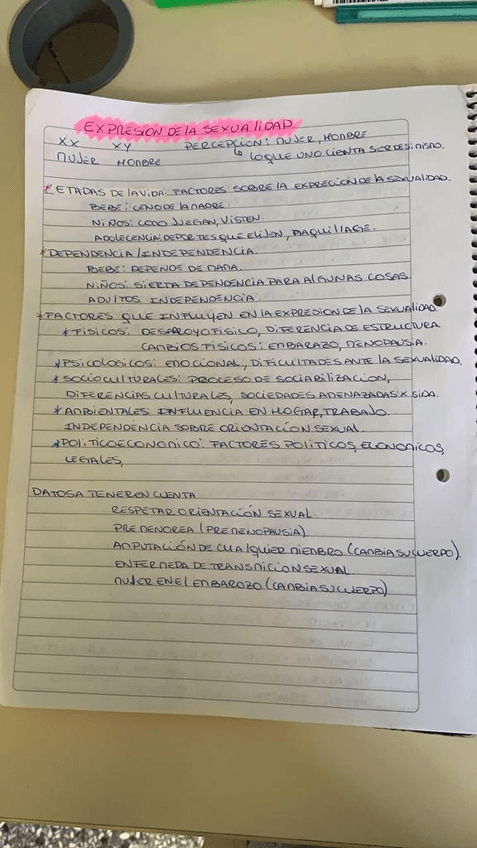 EXPRESION DE LA SEXUALIDAD
XX XY PERCEPCION: MUJER, HOMBRE
MUJER HOMBRE ↳ LO QUE UNO CIENTA SER DE SI MISMO.
*ETADAS DE LA VIDA: FACTORES SOBRE LA EXPRECION DE LA SEXUALIDAD.
BEBE: CENO DE LA MADRE.
NIÑOS: COMO JUEGAN, VISTEN.
ADOLECENCIA: DEPORTES QUE ELIJEN, MAQUILLAGE.
*DEPENDENCIA/INDEPENDENCIA.
BEBE: DEPENDE DE MAMA.
NIÑOS: SIERTA DEPENDENCIA PARA ALGUNAS COSAS.
ADULTOS INDEPENDENCIA.
*FACTORES QUE INFLUYEN EN LA EXPRESION DE LA SEXUALIDAD.
*FISICOS: DESARROYO FISICO, DIFERENCIA DE ESTRUCTURA.
CAMBIOS FISICOS: EMBARAZO, MENOPAUSIA.
*PSICOLOGICOS: EMOCIONAL, DIFICULTADES ANTE LA SEXUALIDAD.
*SOCIOCULTURALES: PROCESO DE SOCIABILIZACION,
DIFERENCIAS CULTURALES, SOCIEDADES AMENAZADAS X SIDA.
*AMBIENTALES: INFLUENCIA EN HOGAR, TRABAJO.
INDEPENDENCIA SOBRE ORIENTACION SEXUAL.
*POLITICOECONOMICO: FACTORES POLITICOS, ECONOMICOS,
LEGALES,
DATOS A TENER EN CUENTA
RESPETAR ORIENTACIÓN SEXUAL
PREMENOREA (PREMENOPAUSIA).
AMPUTACIÓN DE CUALQUIER MIEMBRO (CAMBIA SU CUERPO).
ENFERMEDA DE TRANSMICION SEXUAL
MUJER EN EL EMBAROZO (CAMBIA SU CUERPO)